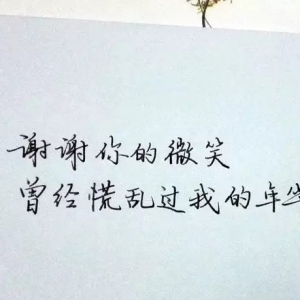 谢谢你的微笑
曾经慌乱过我的年